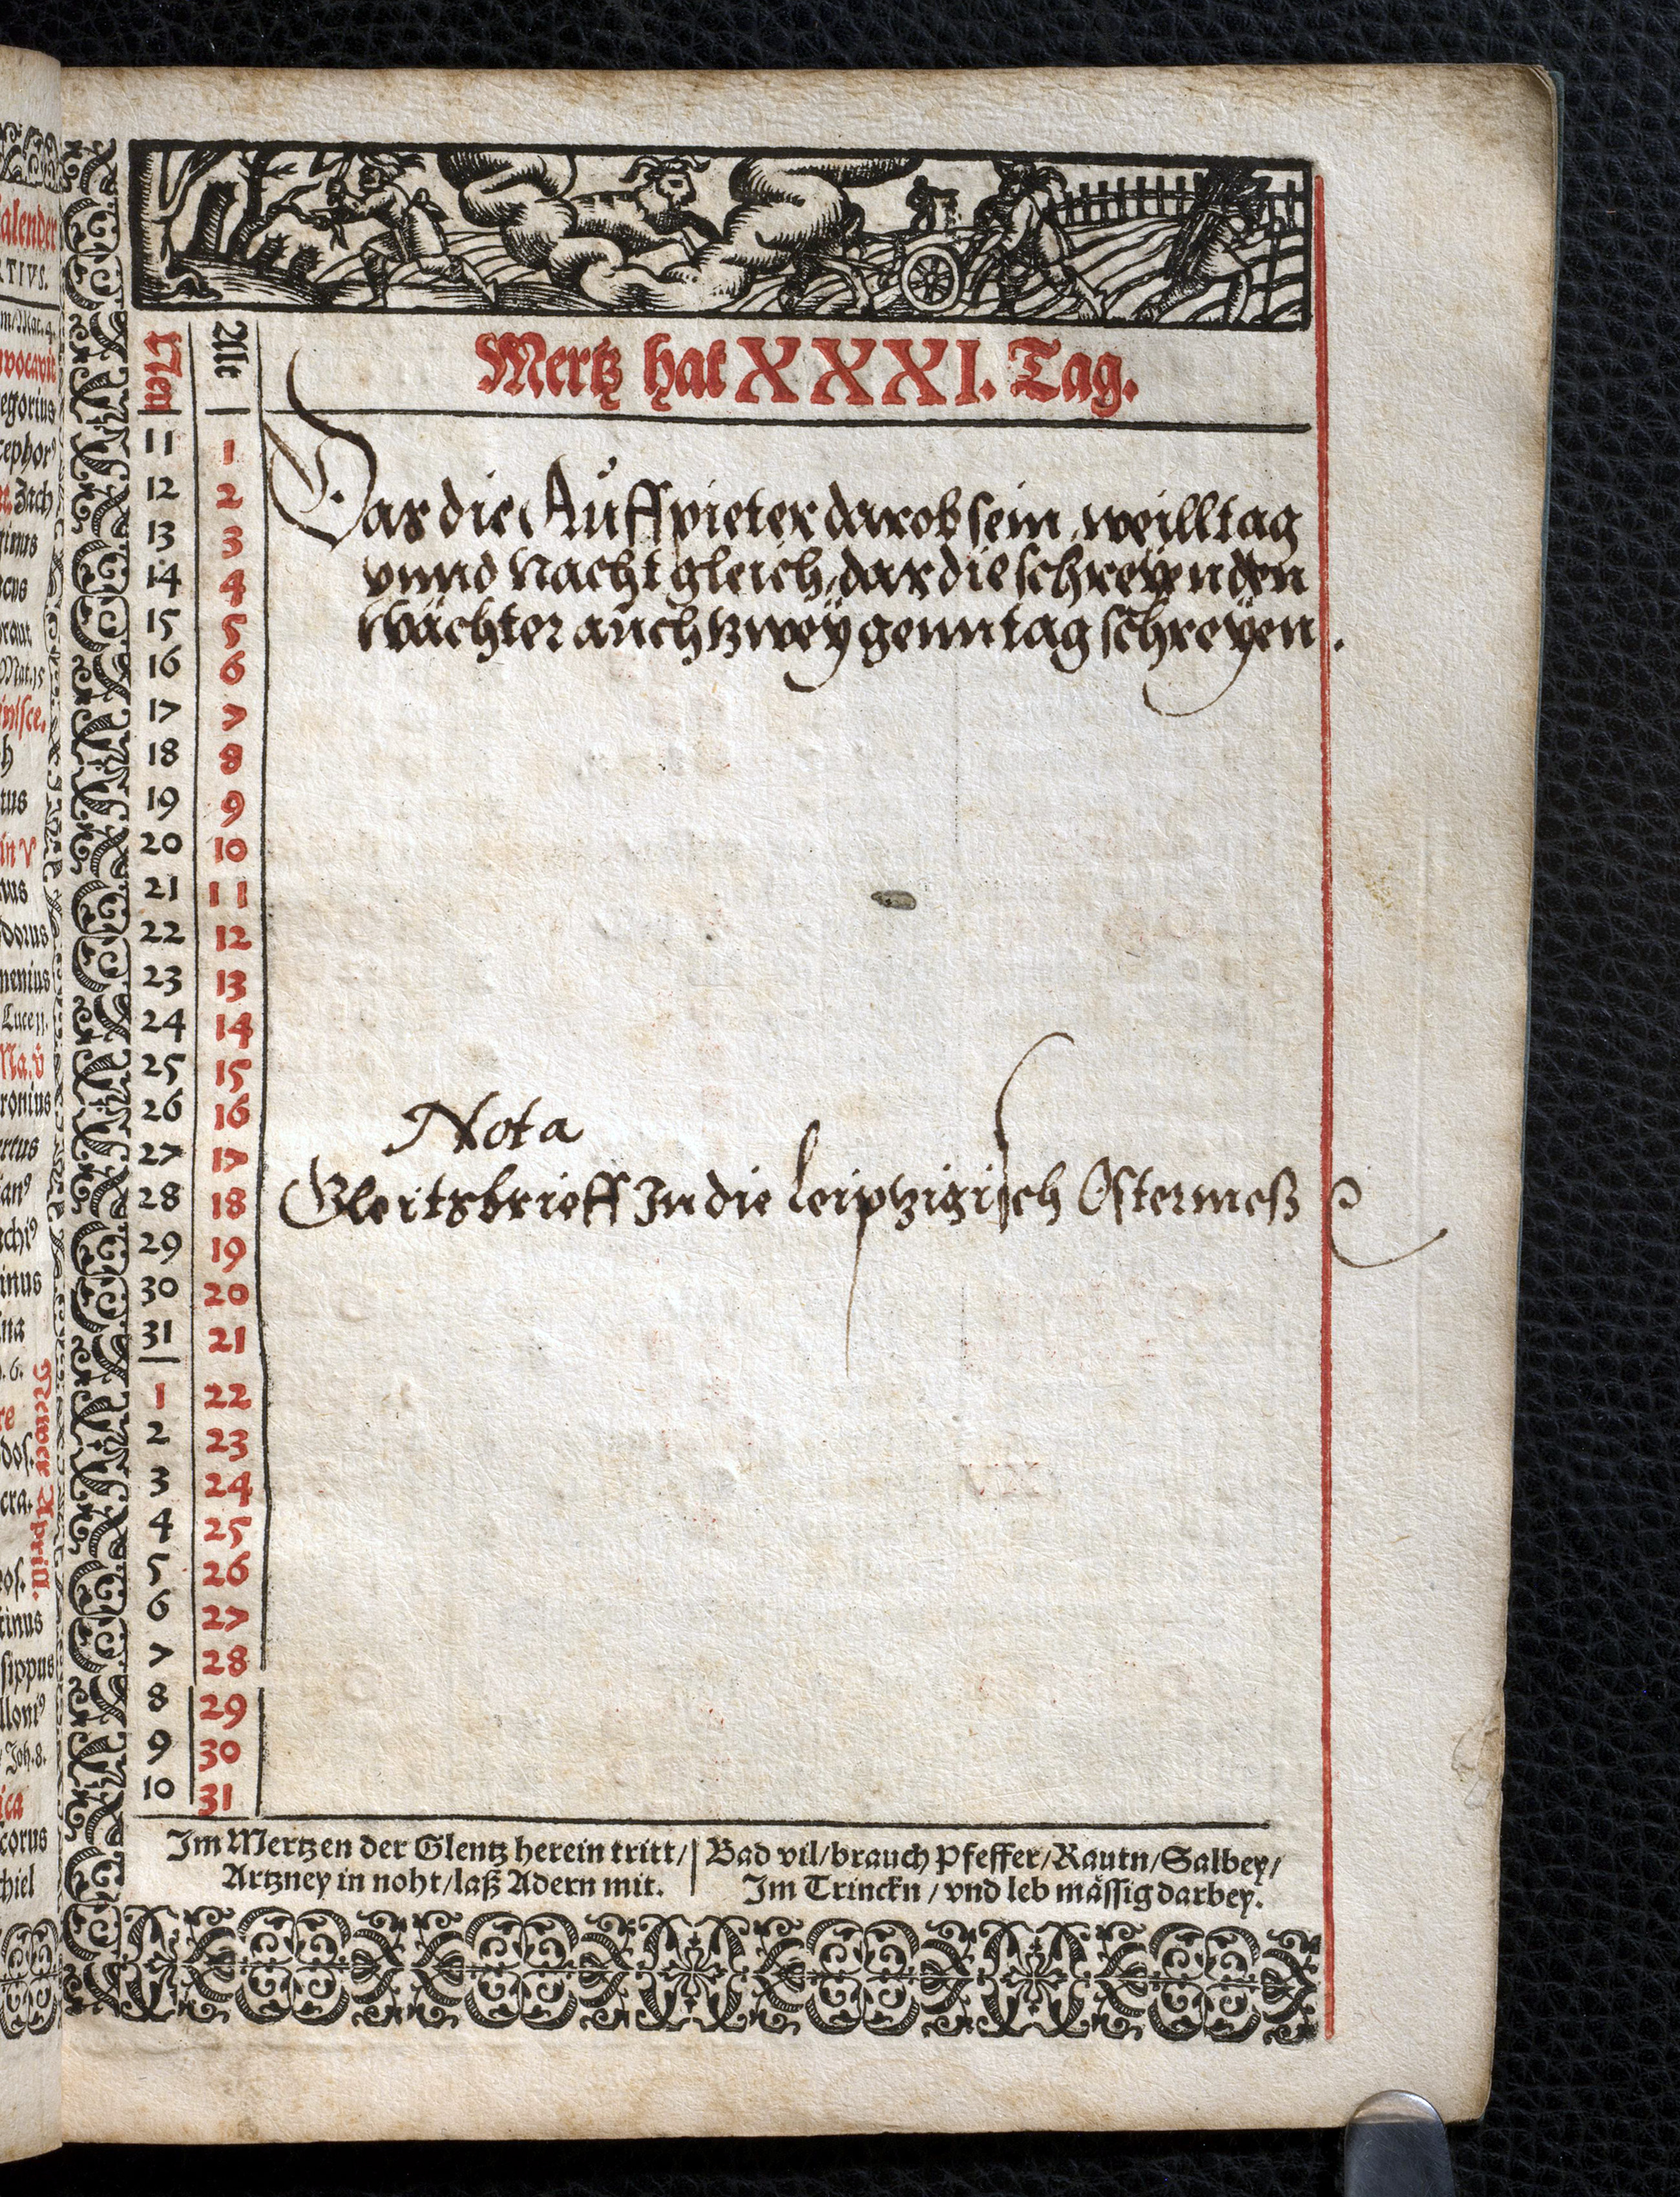 Mertz hat XXXI. Tag.
New
Alt
11 1
12 2
13 3
14 4
15 5
16 6
17 7
18 8
19 9
20 10
21 11
22 12
23 13
24 14
25 15
26 16
27 17
28 18
29 19
30 20
31 21
1 22
2 23
3 24
4 25
5 26
6 27
7 28
8 29
9 30
10 31
Das die Auffpieter darob sein, weill tag
vnnd Nacht gleich, das die schreyenden
Wächter auch tzwey genn tag schreyen.
Nota
Gleitsbrieff In die Leiptzigisch Ostermeß
Im Mertzen der Glentz herein tritt/
Artzney in noht/laß Adern mit.
Bad vil/brauch Pfeffer/Rautn/Salbey/
Im Trinckn/vnd leb mässig darbey.
alender
TIVS.
egorius
Zach
tus
in V
dorus
menius
Na. v
ronius
inus
Newer Aprill.
tinus
sippus
Joh. 8.
ica
corus
hiel